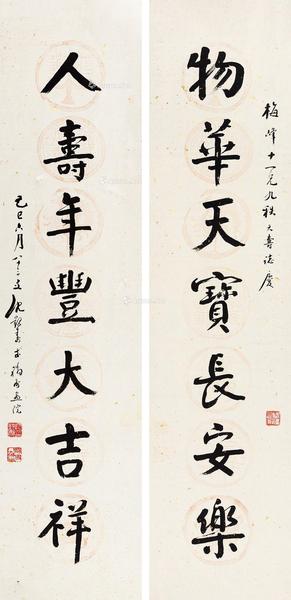 梅峰十一兄九秩大壽誌慶
物華天寶長安樂
人壽年豐大吉祥
己巳六月